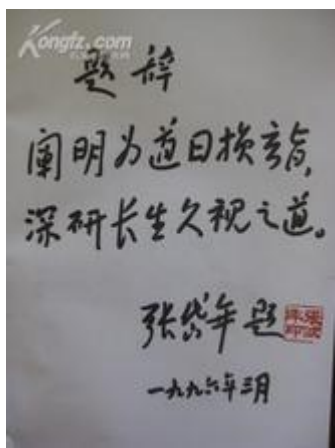 Kongfz.com
题辞
阐明为道日损玄旨，
深研长生久视之道。
张岱年题
一九九六年三月